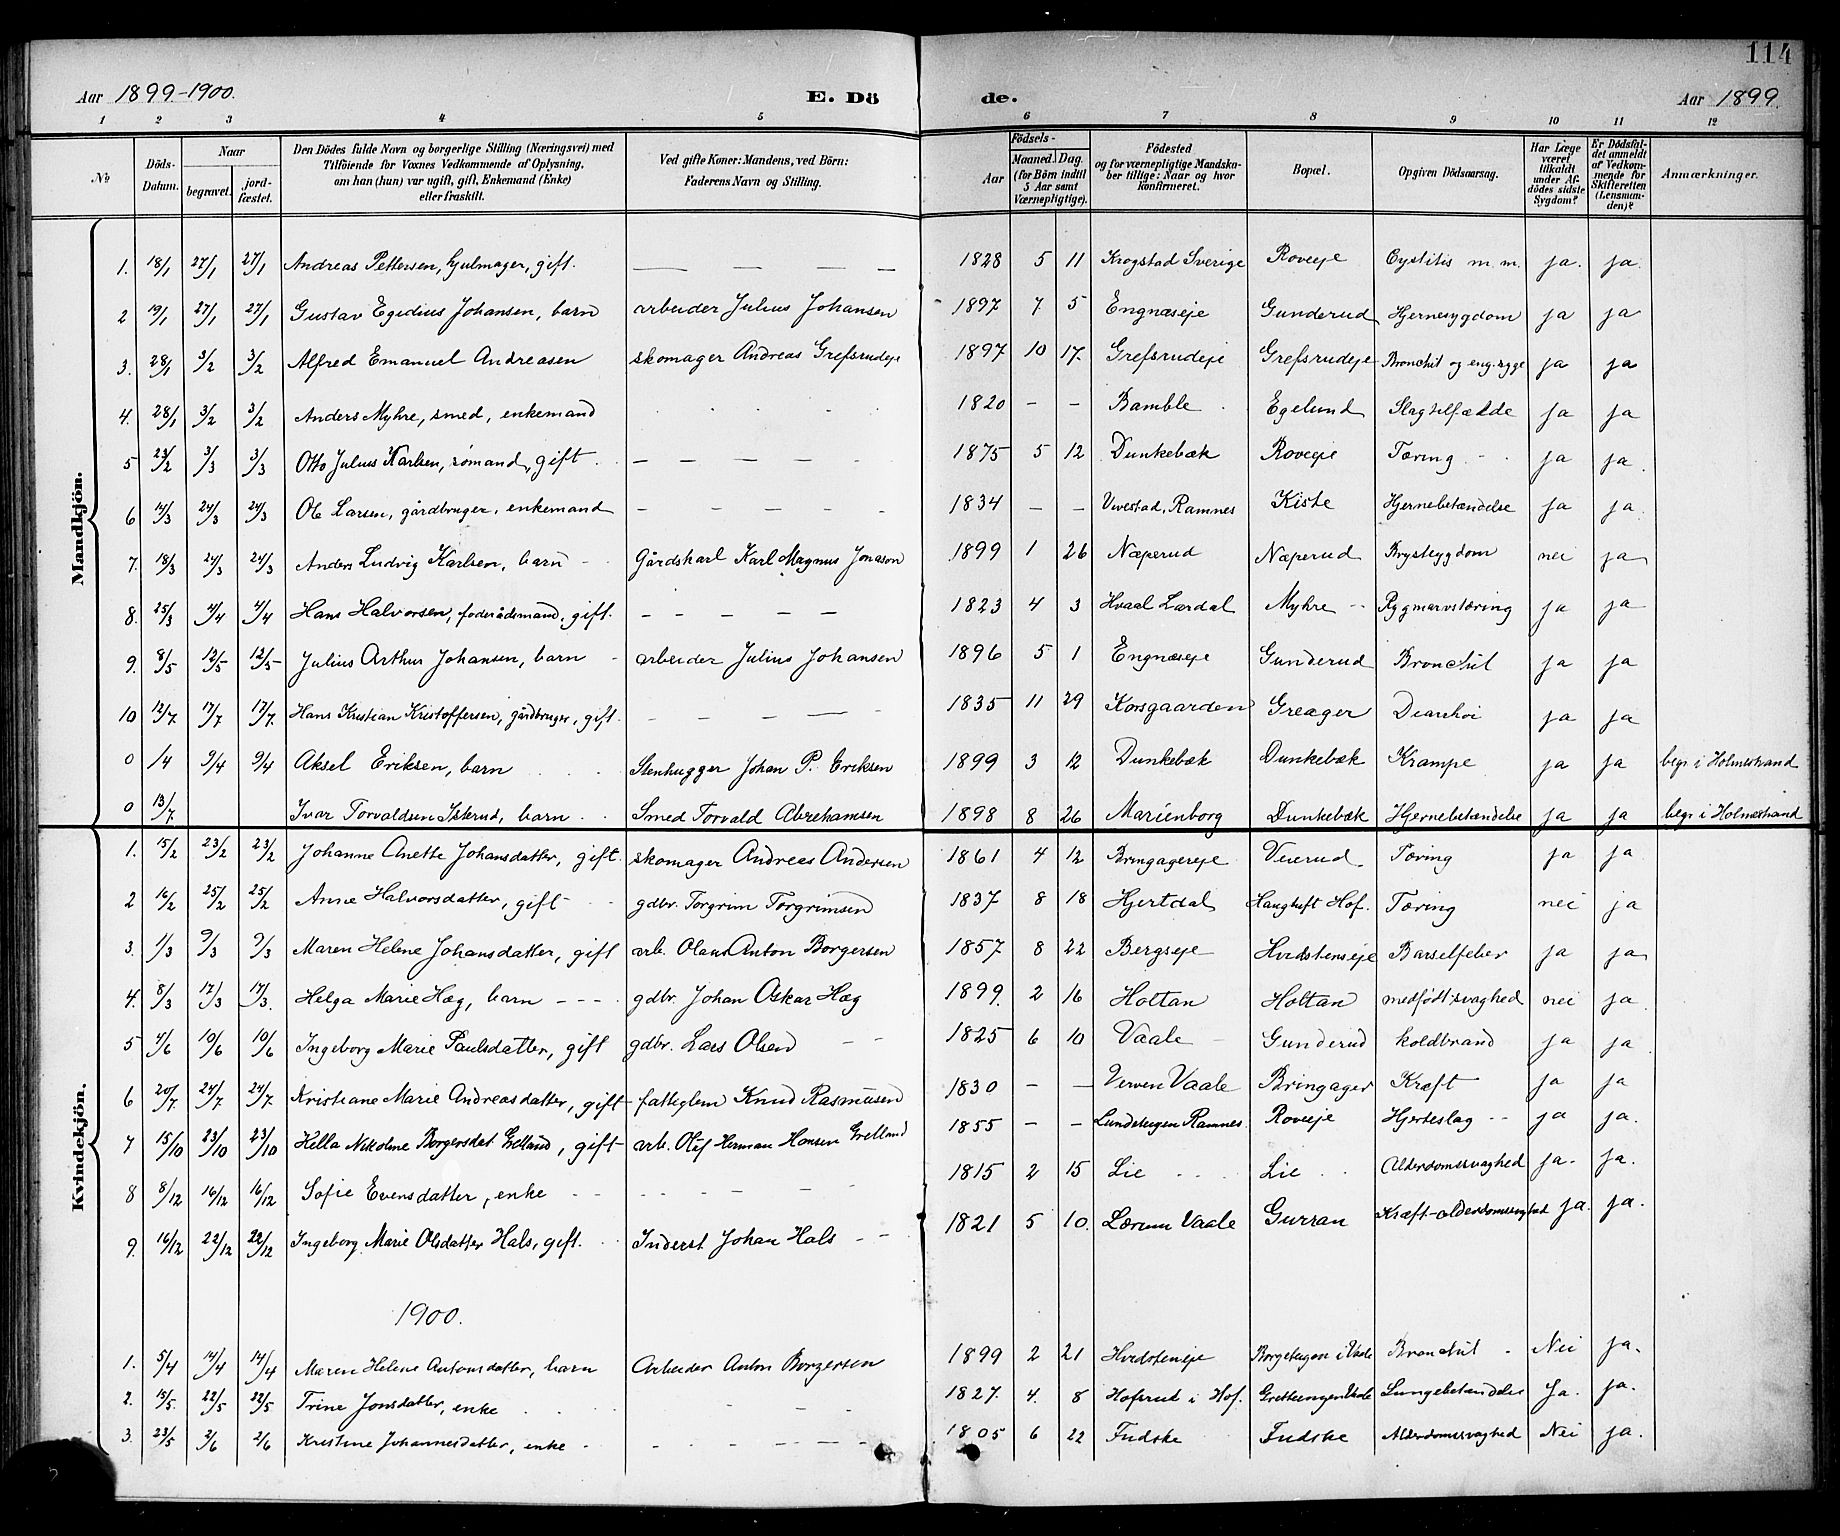 114
Aar 1899-1900. E. Dö de. Aar 1899
1 2 3 4 5 6 7 8 9 10 11 12
No Döds-Datum. Naar begravet. jordfæstet. Den Dödes fulde Navn og borgerlige Stilling (Næringsvei) med Tilföiende for Voxnes Vedkommende af Oplysning, om han (hun) var ugift, gift, Enkemand (Enke) eller fraskilt. Ved gifte Koner: Mandens, ved Börn: Faderens Navn og Stilling. Aar Födsels- Maaned. Dag. (for Börn indtil 5 Aar samt Værnepligtige). Födested og for værnepligtige Mandskaber tillige: Naar og hvor konfirmeret. Bopæl. Opgiven Dödsaarsag. Har Læge været tilkaldt under Afdödes sidste Sygdom? Er Dödsfaldet anmeldt af Vedkommende for Skifteretten (Lensmanden)? Anmærkninger.
Mandkjön.
1. 18/1 27/1 27/1 Andreas Pettersen, hjulmager, gift. — — — — 1828 5 11 Krogstad Sverige Roveeje Cystitis m.m. ja. ja.
2 19/1 27/1 27/1 Gustav Egidius Johansen, barn arbeider Julius Johansen 1897 7 5 Engnæseje Gunderud Hjernesygdom ja ja
3. 28/1 3/2 3/2 Alfred Emanuel Andreasen skomager Andreas Grefsrudeje 1897 10 17. Grefsrudeje Grefsrudeje Bronchit og eng. syge ja ja
4. 28/1 3/2 3/2 Anders Myhre, smed, enkemand 1820 — — Bamble Egelund Slagtilfælde ja ja
5 23/2 3/3 3/3 Otto Julius Karlsen, sømand, gift — — — — — 1875 5 12 Dunkebæk Roveeje Tæring ja ja.
6 14/3 24/3 24/3 Ole Larsen, gårdbruger, enkemand — — — — 1834 — — Vivestad, Ramnes Kiste Hjernebetændelse ja ja.
7. 18/3 24/3 24/3 Anders Ludvig Karlsen, barn Gårdskarl Karl Magnus Jonason 1899 1 26 Næperud Næperud Brystsygdom nei ja
8. 25/3 4/4 4/4 Hans Halvorsen, føderådsmand, gift. — — — — — 1823 4 3 Hvaal Lardal Myhre Rygmarvstæring ja ja
9. 8/5 12/5 12/5 Julius Arthur Johansen, barn arbeider Julius Johansen 1896 5 1 Engnæseje Gunderud Bronchit ja ja
10 12/7 17/7 17/7. Hans Kristian Kristoffersen, gårdbruger, gift. — — — — 1835 11 29 Korsgaarden Greager Diarrhoi ja ja
0 1/4 9/4 9/4 Aksel Eriksen, barn Stenhugger Johan P. Eriksen 1899 3 12 Dunkebæk Dunkebæk Krampe ja ja begr. i Holmestrand
0 13/7 Ivar Torvaldsen Isterud, barn Smed Torvald Abrahamsen 1898 8 26 Marienborg Dunkebæk Hjernebetændelse ja ja begr. i Holmestrand
Kvindekjön.
1. 15/2 23/2 23/2 Johanne Anette Johansdatter, gift. skomager Andreas Andersen 1861 4 12 Bringagereje Veierud Tæring ja ja
2 16/2 25/2 25/2 Anne Halvorsdatter, gift gdbr. Torgrim Torgrimsen 1837 8 18 Hjertdal Haugtuft Hof. Tæring nei ja
3. 1/3 9/3 9/3 Maren Helene Johansdatter, gift arb. Olaus Anton Borgersen 1857 8 22 Bergseje Hvidstenseje Barselfeber ja ja
4. 8/3 17/3 17/3. Helga Marie Hæg, barn — — — gdbr. Johan Oskar Hæg 1899. 2 16 Holtan Holtan medfødt svaghed nei ja
5 4/6 10/6 10/6 Ingeborg Marie Paulsdatter, gift gdbr. Lars Olsen 1825 6 10 Vaale Gunderud koldbrand ja ja
6 20/7 24/7 24/7 Kristiane Marie Andreasdatter, gift fattiglem Knud Rasmusen 1830 — — Verven Vaale Bringager Kræft ja ja
7 15/10 23/10 23/10 Hella Nikoline Borgersdat. Grelland, gift arb. Olaf Herman Hansen Grelland 1855 — — Lundeteigen Ramnes. Roveeje Hjerteslag — ja ja.
8 8/12 16/12 16/12 Sofie Evensdatter, enke 1815 2 15 Lie Lie Alderdomssvaghed ja. ja.
9. 16/12 22/12 22/12 Ingeborg Marie Olsdatter Hals, gift. Inderst Johan Hals 1821 5 10. Lærum Vaale Gurran Kræft-alderdomssvaghed ja. ja.
1900.
1. 5/4 14/4 14/4 Maren Helene Antonsdatter, barn Arbeider Anton Borgersen 1899 2 21 Hvidsteneje Borgeteigen i Vaale Bronchit Nei ja.
2. 15/5. 22/5 22/5 Trine Jonsdatter, enke 1827. 4. 8 Hofsrud i Hof. Gretteeningen Vaale Lungebetændelse Ja. ja.
3. 23/5 2/6 2/6 Kristine Johannesdatter, enke 1805 6 22 Fudske Fudske Alderdomssvaghed Nei ja.